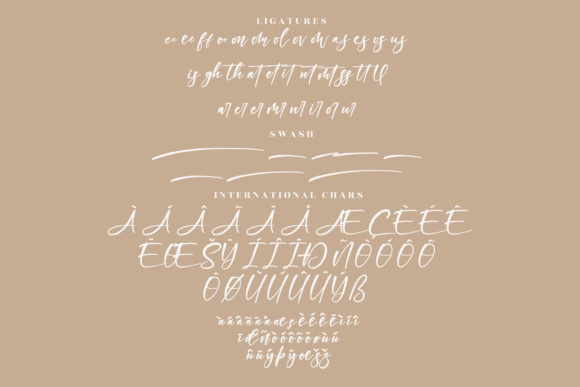 LIGATURES
ec ee ff oo on om ol ov ow as es os us
is gh th at et it ut mt ss tt ll
ar er er mr nr ir or ur
SWASH
INTERNATIONAL CHARS
À Á Â Ã Ä Å Æ Ç È É Ê
Ë Œ Š Ÿ Í Î Ï Ð Ñ Ò Ó Ô Õ
Ö Ø Ù Ú Û Ü Ý ß
à á â ã ä å æ ç è é ê ë ì í î
ï đ ñ ò ó ô õ ö ø ù ú
û ü ý þ ÿ œ š ž